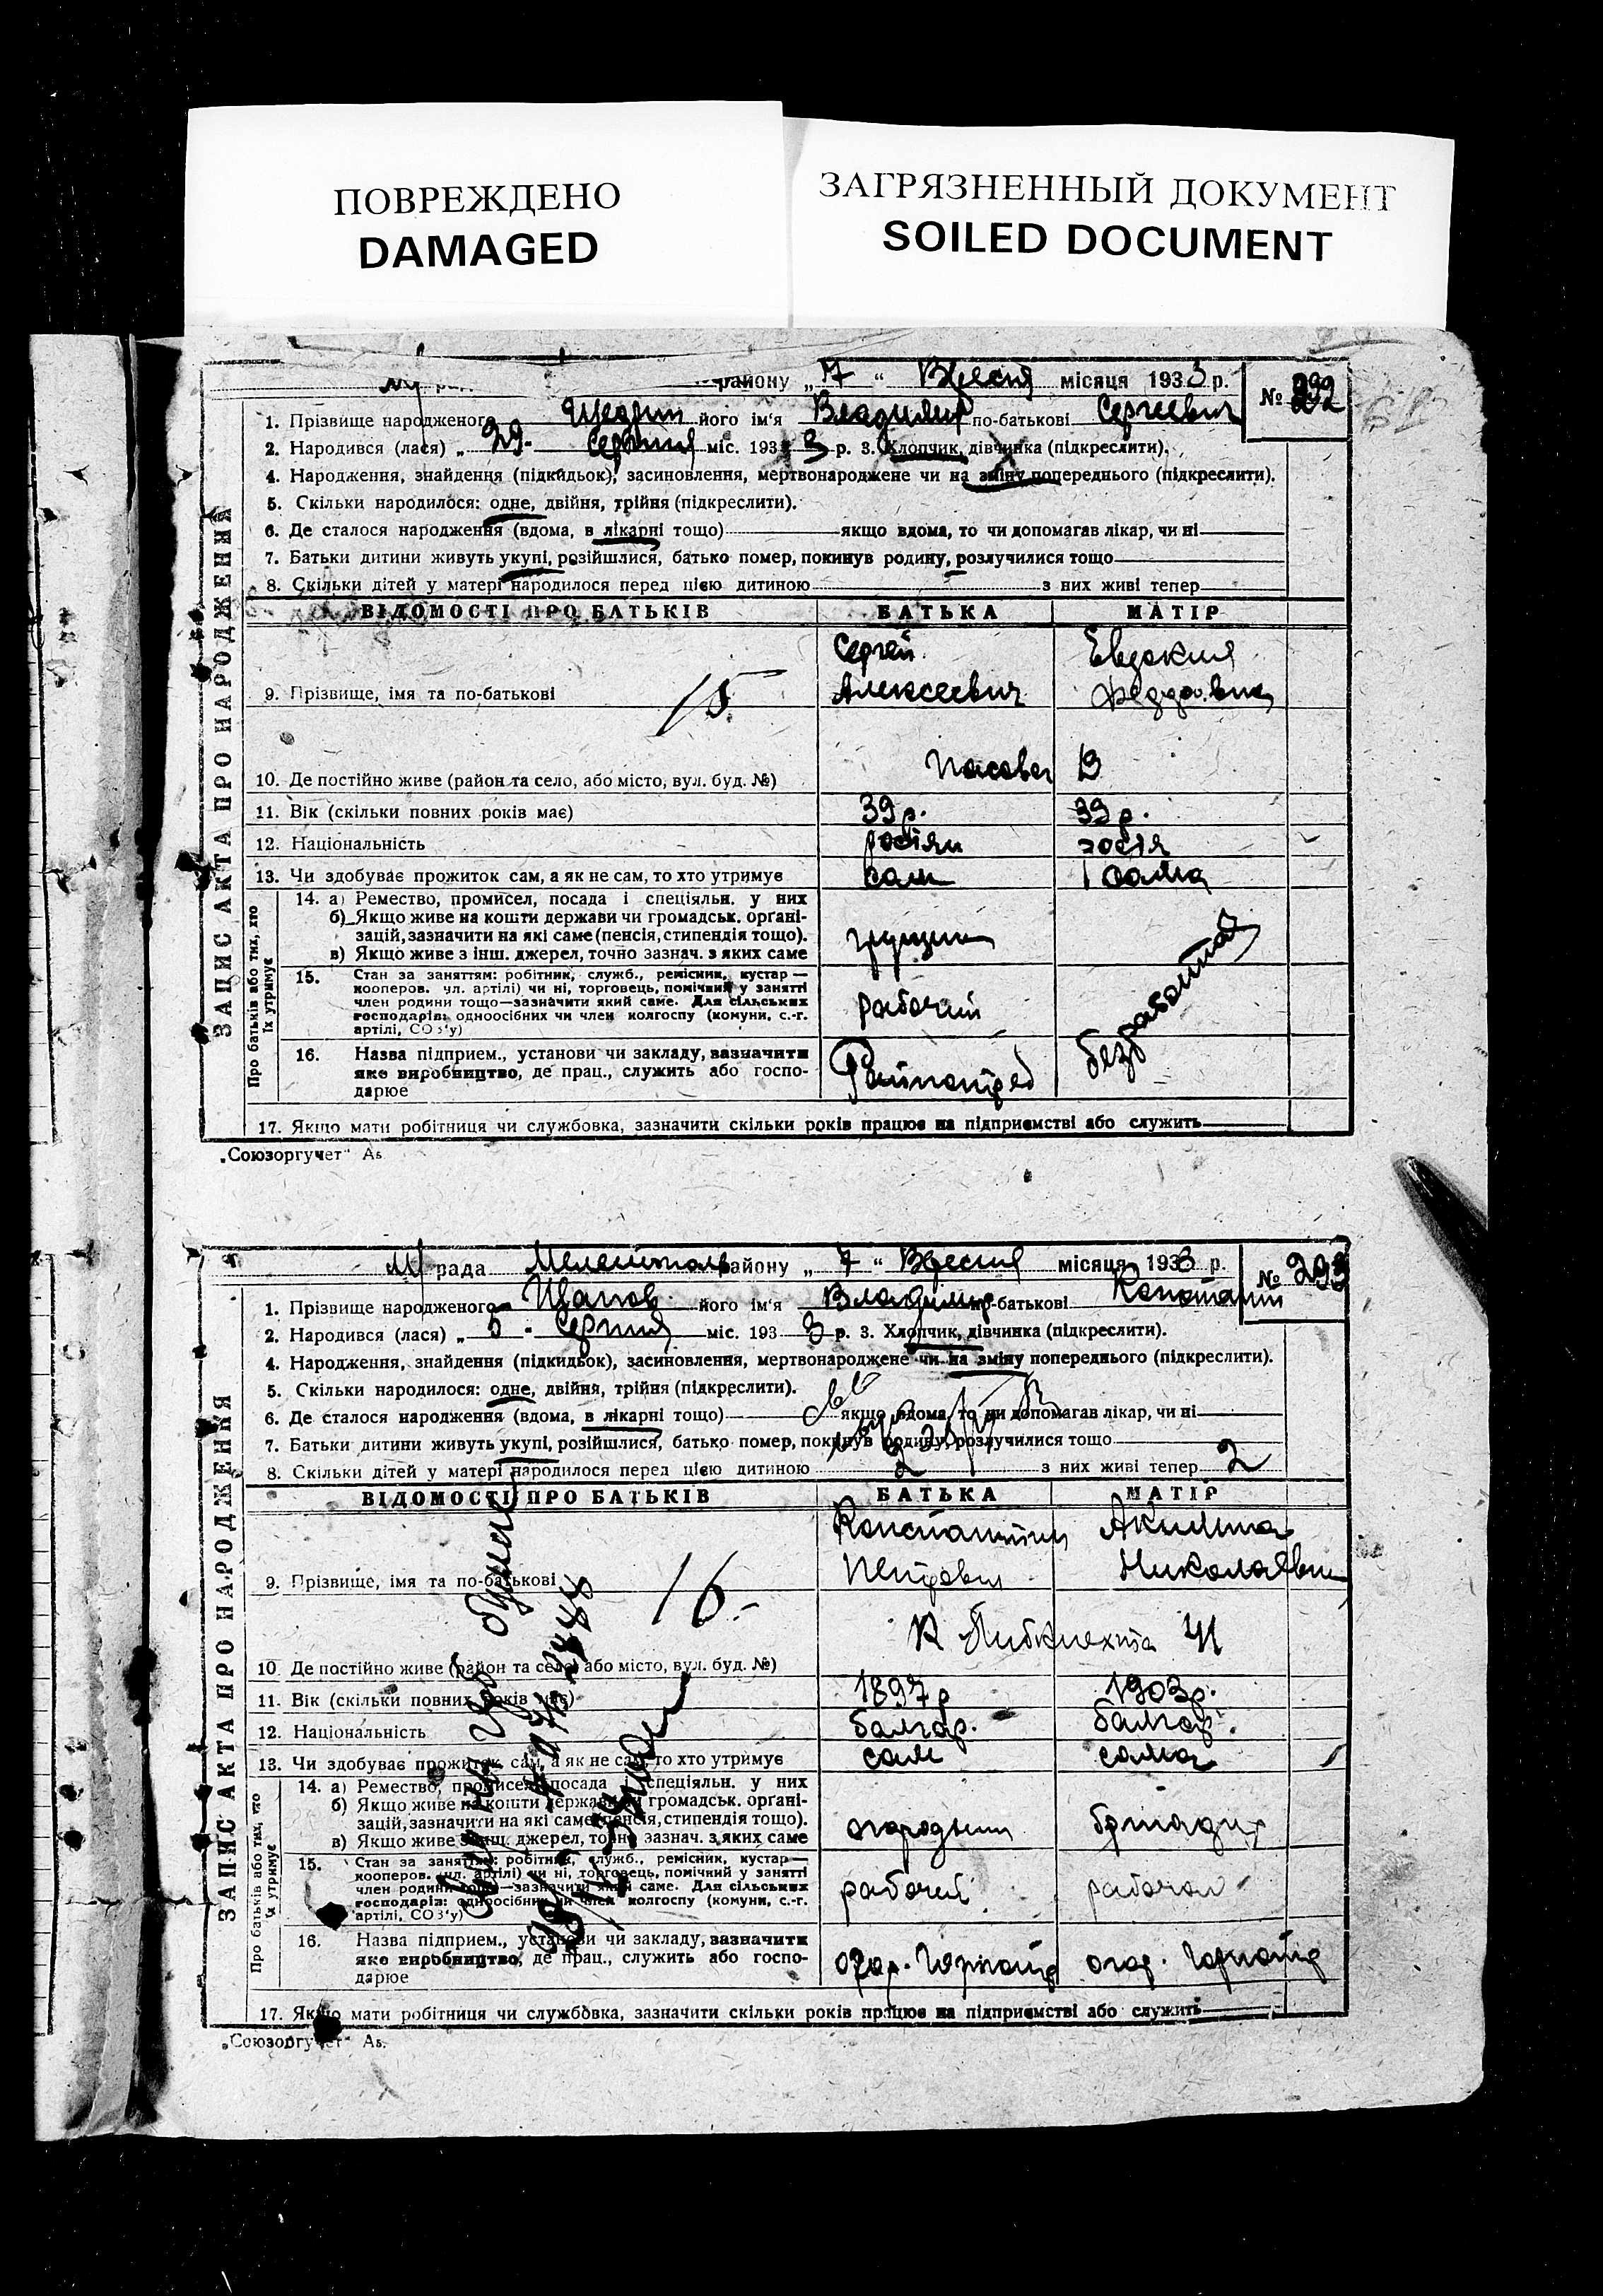 ПОВРЕЖДЕНО
DAMAGED
ЗАГРЯЗНЕННЫЙ ДОКУМЕНТ
SOILED DOCUMENT
району „ 7 “ Вересня місяця 1933 р.
№ 292
ЗАПИС АКТА ПРО НАРОДЖЕННЯ
1. Прізвище народженого Щедрин його ім'я Владимир по-батькові Сергеевич
2. Народився (лася) „ 29 Серпня міс. 193 3 р. 3. Хлопчик, дівчинка (підкреслити).
4. Народження, знайдення (підкидьок), засиновлення, мертвонароджене чи на зміну попереднього (підкреслити).
5. Скільки народилося: одне, двійня, трійня (підкреслити).
6. Де сталося народження (вдома, в лікарні тощо) якщо вдома, то чи допомагав лікар, чи ні
7. Батьки дитини живуть укупі, розійшлися, батько помер, покинув родину, розлучилися тощо
8. Скільки дітей у матері народилося перед цією дитиною з них живі тепер
ВІДОМОСТІ ПРО БАТЬКІВ БАТЬКА МАТІР
Сергей Евдокия
9. Прізвище, імя та по-батькові 15 Алексеевич
10. Де постійно живе (район та село, або місто, вул. буд. №) 13
11. Вік (скільки повних років має) 39 р. 39 р.
12. Національність росіян
13. Чи здобуває прожиток сам, а як не сам, то хто утримує сам сама
Про батьків або тих, хто їх утримує
14. а) Ремество, промисел, посада і спеціяльн. у них
б) Якщо живе на кошти держави чи громадськ. органі-
зацій, зазначити на які саме (пенсія, стипендія тощо).
в) Якщо живе з інш. джерел, точно зазнач. з яких саме
грузчик
безработная
15. Стан за заняттям: робітник, служб., ремісник, кустар —
кооперов. чл. артілі) чи ні, торговець, помічний у занятті
член родини тощо—зазначити який саме. Для сільських
господарів: одноосібних чи член колгоспу (комуни, с.-г.
артілі, СОЗ'у)
рабочий
16. Назва підприєм., установи чи закладу, зазначити
яке виробництво, де прац., служить або госпо-
дарює
17. Якщо мати робітниця чи службовка, зазначити скільки років працює на підприємстві або служить
„Союзоргучет“ Аб.
рада району „ 7 “ Вересня місяця 1933 р.
№ 293
ЗАПИС АКТА ПРО НАРОДЖЕННЯ
1. Прізвище народженого Щапов його ім'я Владимир по-батькові Константин
2. Народився (лася) „ 5 Серпня міс. 193 3 р. 3. Хлопчик, дівчинка (підкреслити).
4. Народження, знайдення (підкидьок), засиновлення, мертвонароджене чи на зміну попереднього (підкреслити).
5. Скільки народилося: одне, двійня, трійня (підкреслити).
6. Де сталося народження (вдома, в лікарні тощо) якщо вдома, то чи допомагав лікар, чи ні
7. Батьки дитини живуть укупі, розійшлися, батько помер, покинув родину, розлучилися тощо
8. Скільки дітей у матері народилося перед цією дитиною 2 з них живі тепер 2
ВІДОМОСТІ ПРО БАТЬКІВ БАТЬКА МАТІР
Константин Акилина
9. Прізвище, імя та по-батькові 16 Петрович
К Либкнехта 41
10. Де постійно живе (район та село, або місто, вул. буд. №)
11. Вік (скільки повних років має) 1897 р 1903 р.
12. Національність болгар. болгар.
13. Чи здобуває прожиток сам, а як не сам, то хто утримує сам сама
Про батьків або тих, хто їх утримує
14. а) Ремество, промисел, посада і спеціяльн. у них
б) Якщо живе на кошти держави чи громадськ. органі-
зацій, зазначити на які саме (пенсія, стипендія тощо).
в) Якщо живе з інш. джерел, точно зазнач. з яких саме
огородник бригадир
15. Стан за заняттям: робітник, служб., ремісник, кустар —
кооперов. чл. артілі) чи ні, торговець, помічний у занятті
член родини тощо—зазначити який саме. Для сільських
господарів: одноосібних чи член колгоспу (комуни, с.-г.
артілі, СОЗ'у)
рабочий
16. Назва підприєм., установи чи закладу, зазначити
яке виробництво, де прац., служить або госпо-
дарює
17. Якщо мати робітниця чи службовка, зазначити скільки років працює на підприємстві або служить
„Союзоргучет“ Аб.